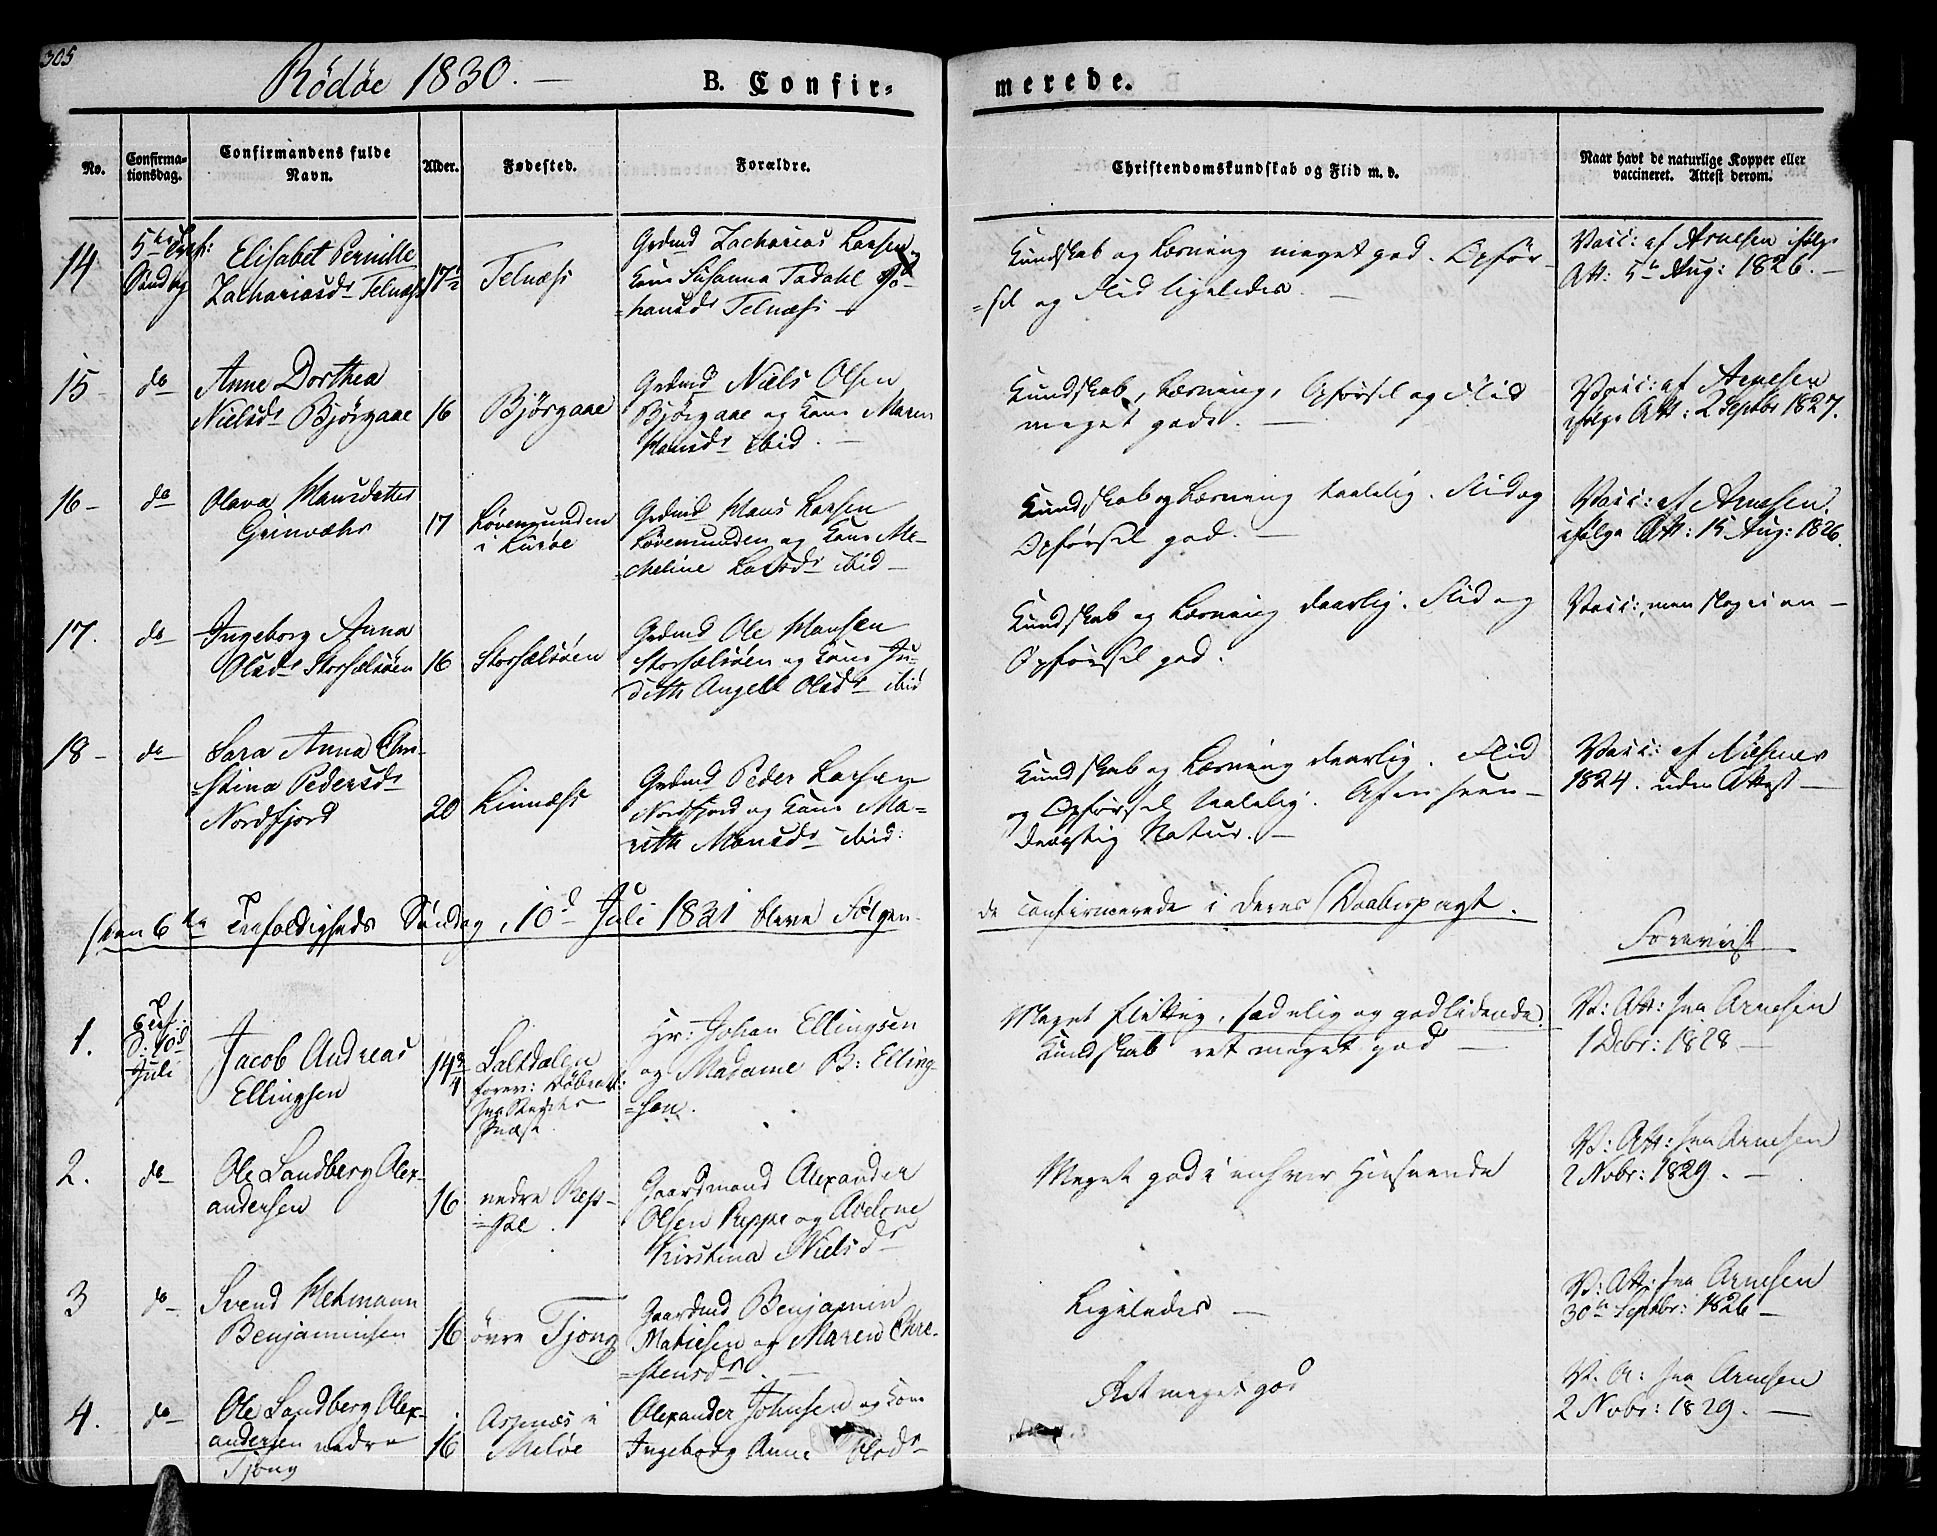 305
Rödöe 1830. —
B. Confir=
merede.
No.
Confirma=
tionsdag.
Confirmandens fulde
Navn.
Alder.
Fødested.
Forældre.
Christendomskundskab og Flid m. v.
Naar havt de naturlige Kopper eller
vaccineret. Attest derom.
14
Søndag
Elisabet Pernille
Zachariasdr Telnæss
17½
Telnæss
Grdmd Zacharias Larsen
Kone Susanna Jo-
=hansdr Telnæss —
Kundskab og Læsning meget god. Opför-
=sel og Flid ligeledes. —
Vacc: af Arnesen ifølge
Att: 5te Aug: 1826. —
15 -
do
Anne Dorthea
Nielsdr Bjørgaae
16
Bjørgaae
Grdmd Niels Olsen
Bjørgaae og Kone Maren
Hansdr ibid. —
Kundskab, Læsning, Opførsel og Flid
meget gode. —
Vacc: af Arnesen
ifølge Att: 2 Septbr 1827.
16 -
do
Olava Hansdatter
17
Lövemunden
i Luröe
Grdmd Hans Larsen
Lövemunden og Kone Me-
Larsdr ibid —
Kundskab og Læsning taalelig. Flid og
Opførsel god. —
Vacc: af Arnesen
ifølge Att: 15 Aug: 1826.
17.
do
Ingeborg Anna
Olsdr Storsælsöen
16
Storsælsöen
Grdmd Ole Hansen
Storsælsöen og Kone Ju-
dith Angell Olsdr ibid
Kundskab og Læsning daarlig. Flid og
Opførsel god.
Vacc:, men slog ei an —
18 -
do
Sara Anna Chri-
=stina Pedersdr
Nordfjord
20
Linnæss
Grdmd Peder Larsen
Nordfjord og Kone Ma-
rith Monsdr ibid:
Kundskab og Læsning daarlig. Flid
og Opførsel taalelig. Af en
Natur. —
Vacc: af
1824. uden Attest —
den 6te Trefoldigheds Söndag, 10d Juli 1831 bleve Fölgen-
de confirmerede i deres Daabespagt.
Foreviist
1.
d. 10d
Juli
Jacob Andreas
Ellingsen
14¾
Saltdalen
forev: Döbeatt:
fra Stedets
Præst
Hr: Johan Ellingsen
og Madame B: Elling-
=sen.
Meget flittig, sædelig og godlidende.
Kundskab ret meget god —
V: Att: fra Arnesen
1 Decbr: 1828 —
2.
do
Ole Sandberg Alex-
andersen
16
nedre Rep-
=pe.
Gaardmand Alexander
Olsen Reppe og Avelone
Kirstina Nielsdr
Meget god i enhver Henseende
V: Att: fra Arnesen
2 Novbr: 1829. —
3
do
Svend Hetmann
Benjaminsen
16
övre Tjong
Gaardmd Benjamin
Matiesen og Maren Chri-
=stensdr. —
Ligeledes —
V: Att: fra Arnesen
30te Septbr: 1826 —
4.
do
Ole Sandberg Alex-
andersen nedre
Tjong
16
Aspenæs i
Melöe
Alexander Johnsen og Kone
Ingeborg Anne Olsdr
Ret meget god
V. A: fra Arnesen
2 Novbr: 1829. —